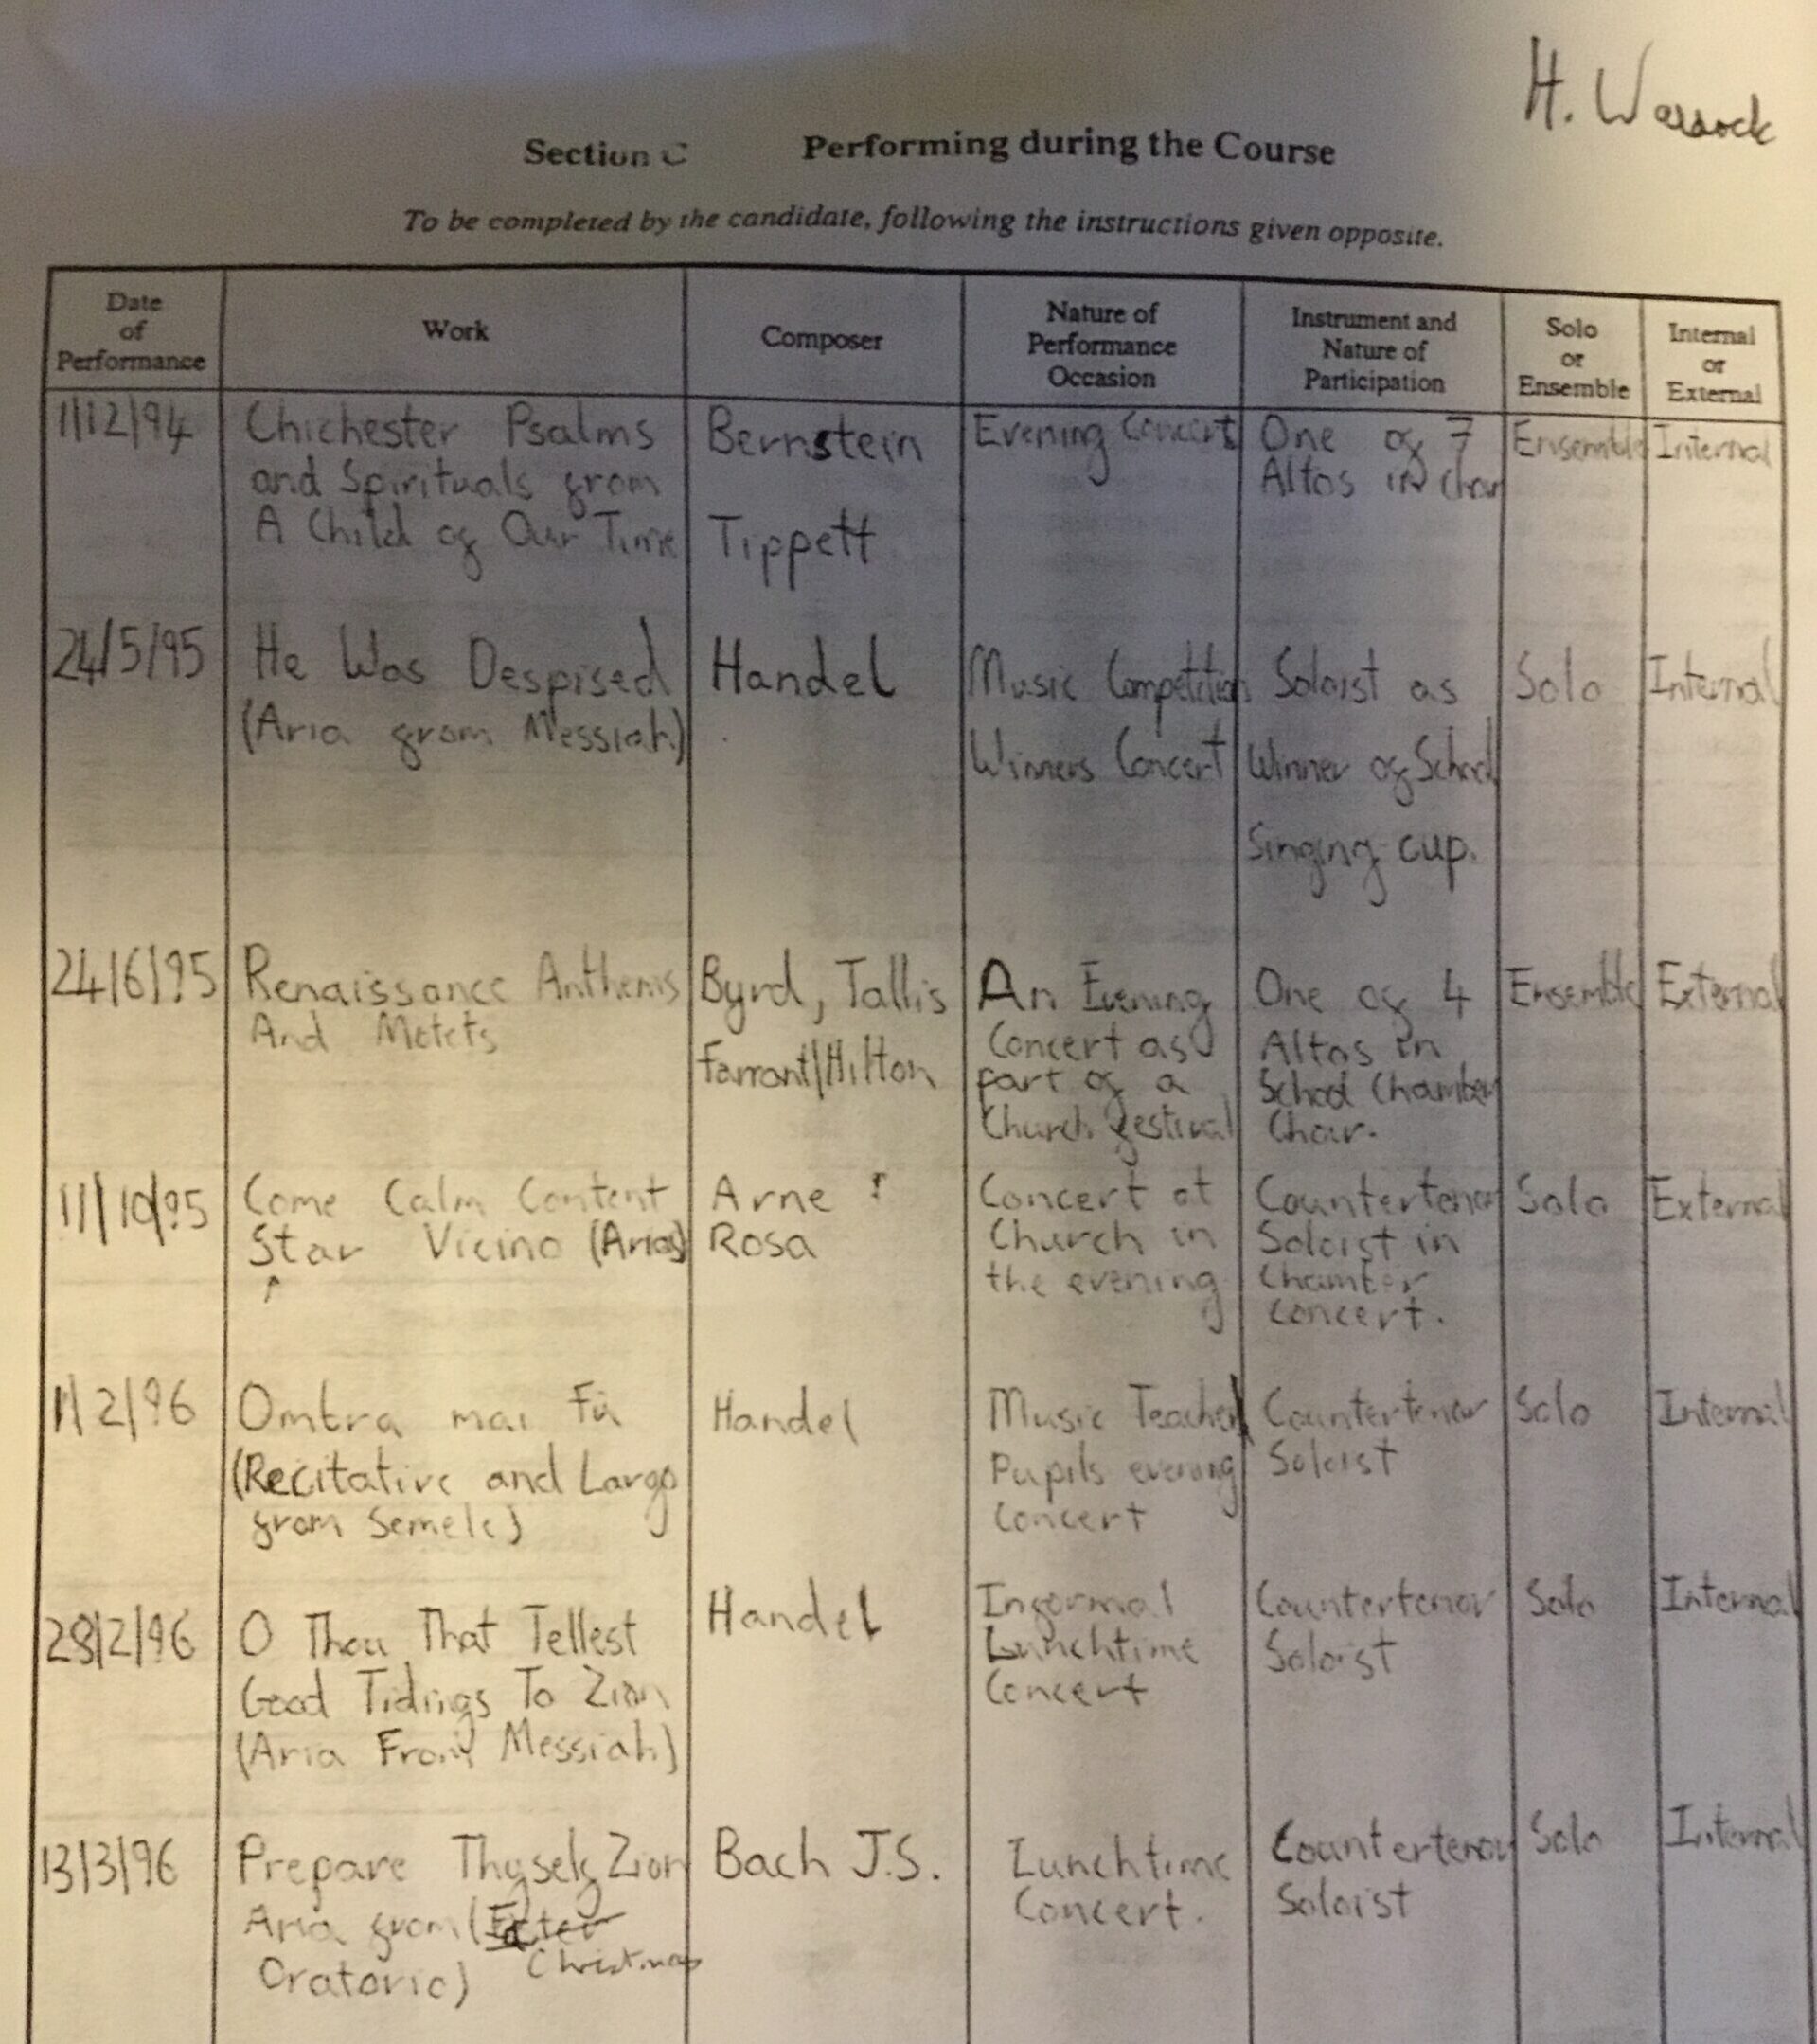 H. Warrock
Section C Performing during the Course
To be completed by the candidate, following the instructions given opposite.
Date of Performance
Work
Composer
Nature of Performance Occasion
Instrument and Nature of Participation
Solo or Ensemble
Internal or External
1/12/94
Chichester Psalms
and Spirituals from
A Child of Our Time
Bernstein
Tippett
Evening Concert
One of 7
Altos in Choir
Ensemble
Internal
24/5/95
He Was Despised
(Aria from Messiah)
Handel
Music Competition
Winners Concert
Soloist as
Winner of School
Singing cup.
Solo
Internal
24/6/95
Renaissance Anthems
And Motets
Byrd, Tallis
Farrant/Hilton
An Evening
Concert as
part of a
Church festival
One of 4
Altos in
School Chamber
Choir.
Ensemble
External
11/10/95
Come Calm Content
Star Vicino (Arias)
Arne
Rosa
Concert at
Church in
the evening
Countertenor
Soloist in
Chamber
concert.
Solo
External
1/2/96
Ombra mai Fu
(Recitative and Largo
from Semele)
Handel
Music Teacher
Pupils evening
Concert
Countertenor
Soloist
Solo
Internal
28/2/96
O Thou That Tellest
Good Tidings To Zion
(Aria From Messiah)
Handel
Informal
Lunchtime
Concert
Countertenor
Soloist
Solo
Internal
13/3/96
Prepare Thyself Zion
Aria from (
Christmas
Oratorio)
Bach J.S.
Lunchtime
Concert.
Countertenor
Soloist
Solo
Internal